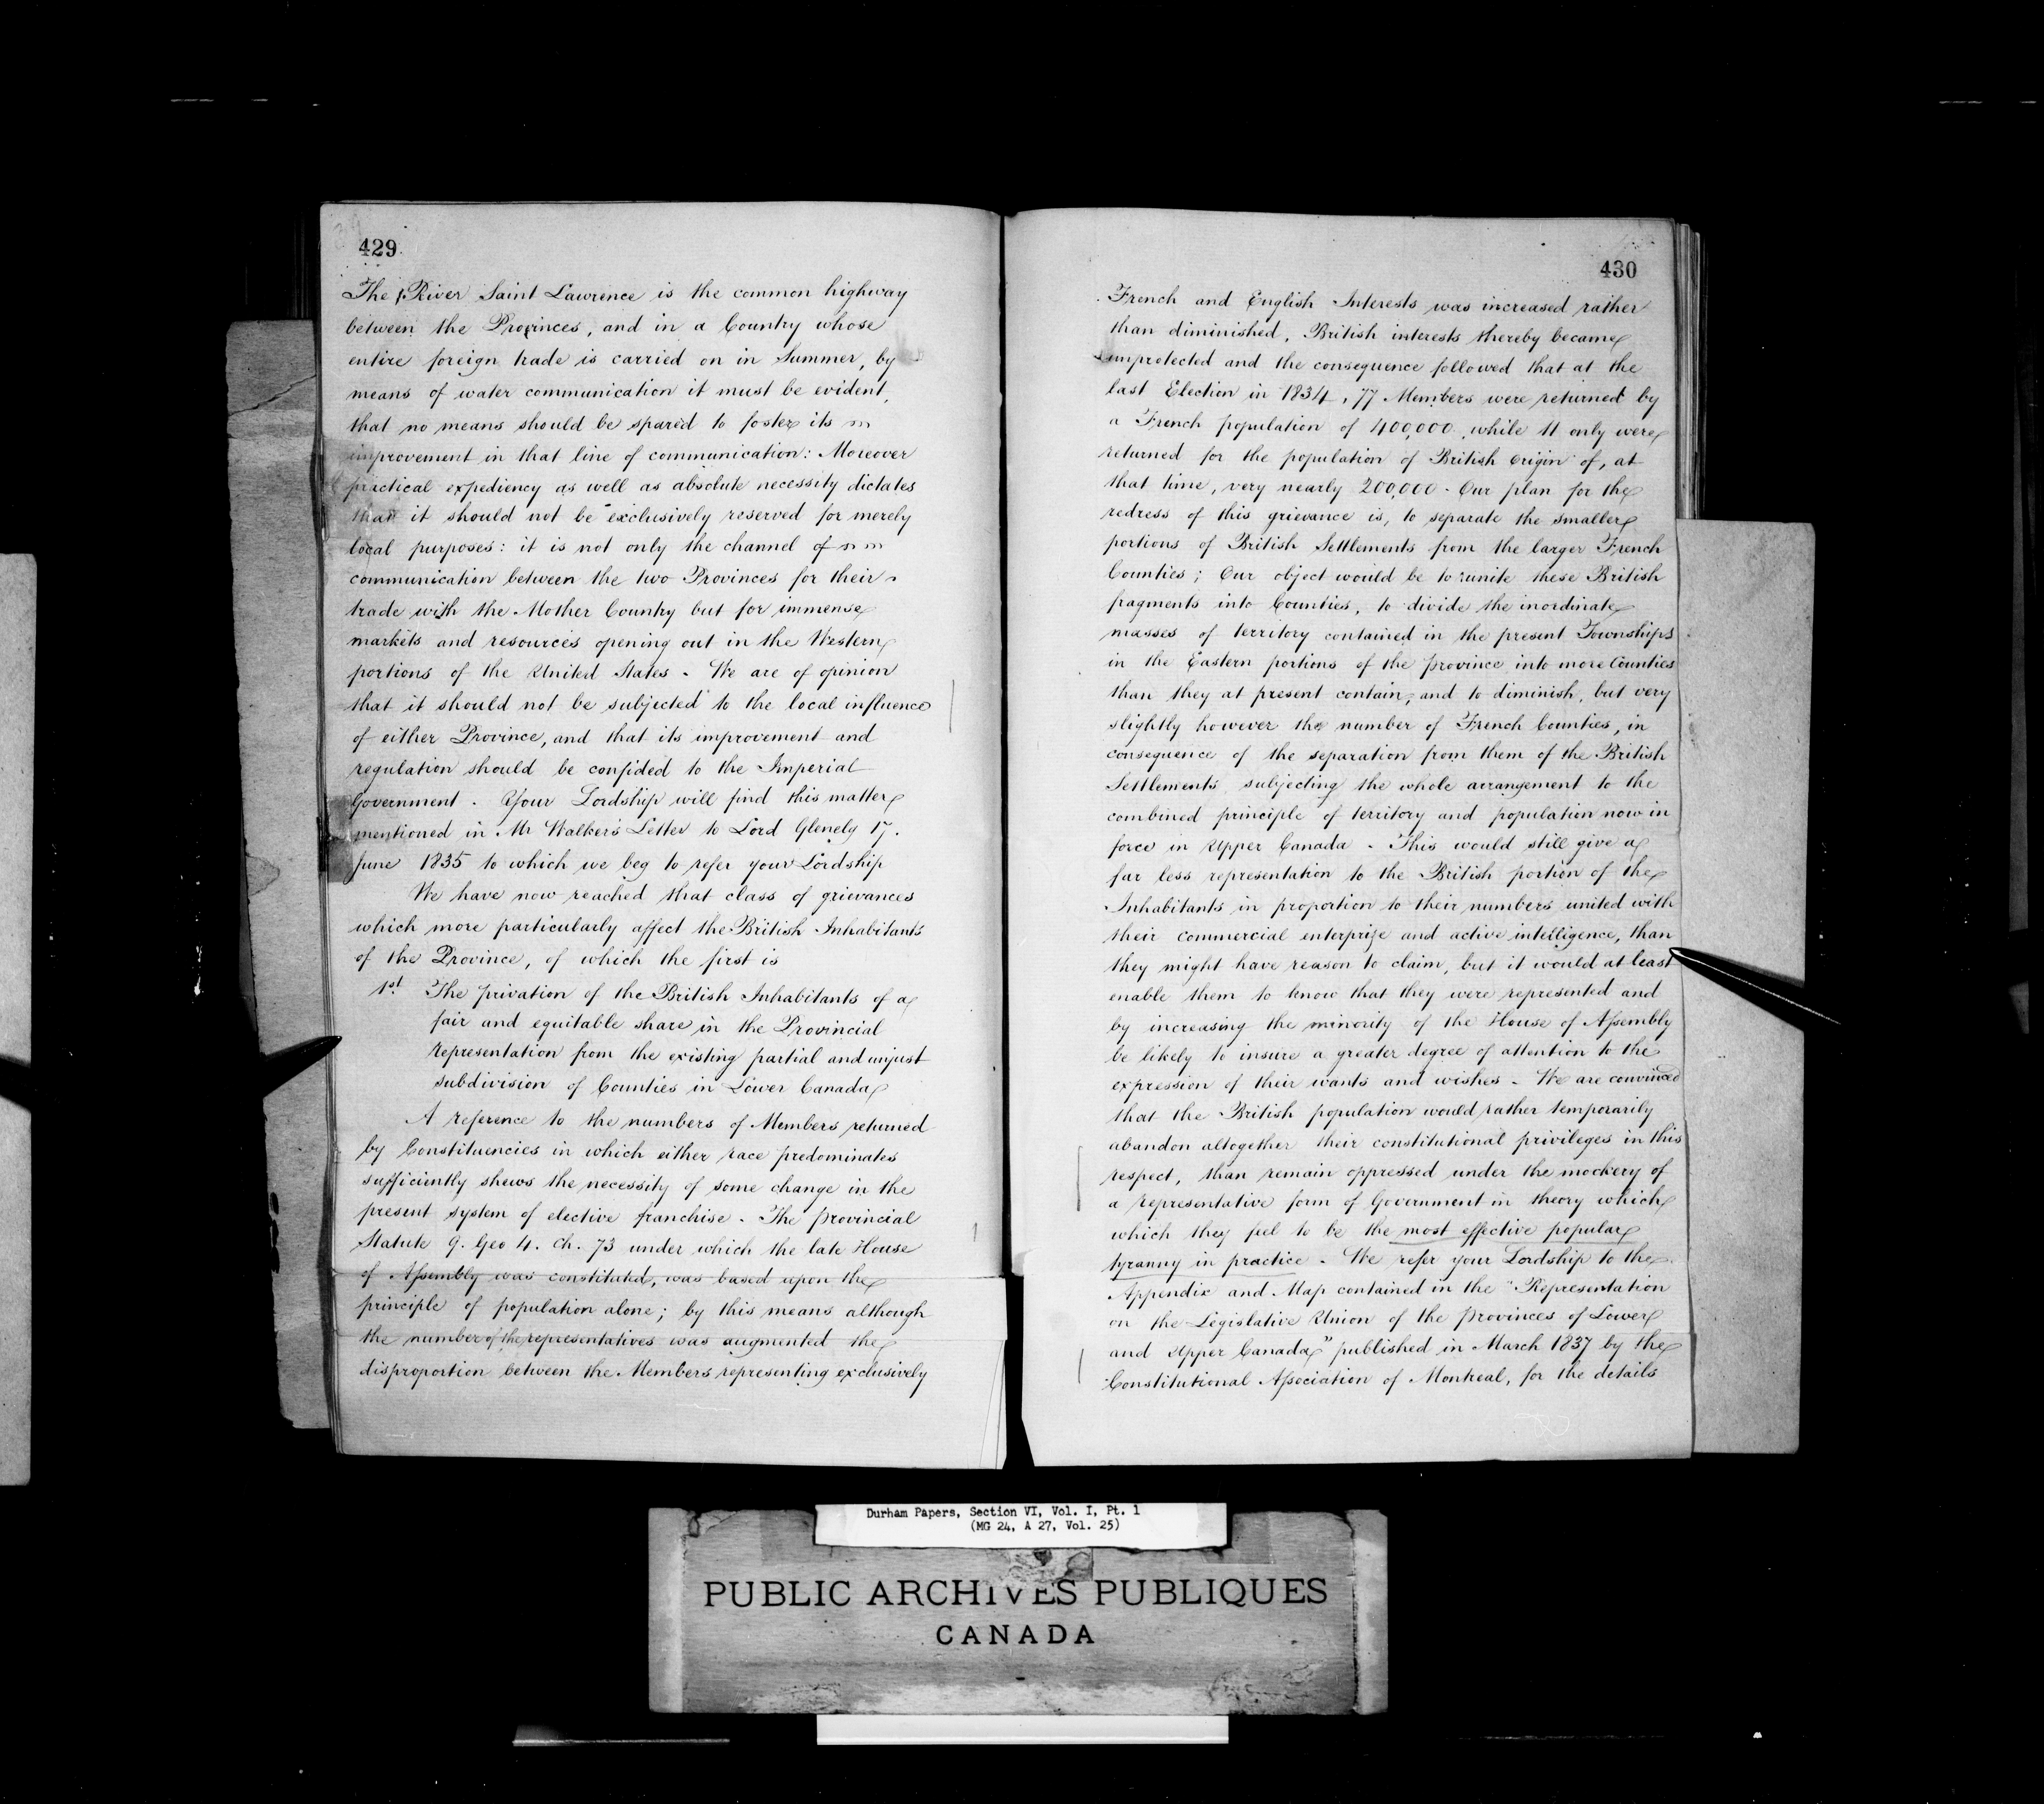 429
The River Saint Lawrence is the common highway
between the Provinces, and in a Country whose
entire foreign trade is carried on in Summer, by
means of water communication it must be evident,
that no means should be spared to foster its
improvement in that line of communication: Moreover
practical expediency as well as absolute necessity dictates
that it should not be exclusively reserved for merely
local purposes: it is not only the channel of
communication between the two Provinces for their
trade with the Mother Country but for immense
markets and resources opening out in the Western
portions of the United States - We are of opinion
that it should not be subjected to the local influence
of either Province, and that its improvement and
regulation should be confided to the Imperial
Government. Your Lordship will find this matter
mentioned in Mr Walker's Letter to Lord Glenely 17.
June 1835 to which we beg to refer your Lordship
We have now reached that class of grievances
which more particularly affect the British Inhabitants
of the Province, of which the first is
1st The privation of the British Inhabitants of a
fair and equitable share in the Provincial
representation from the existing partial and unjust
subdivision of Counties in Lower Canada
A reference to the numbers of Members returned
by Constituencies in which either race predominates
sufficiently shews the necessity of some change in the
present system of elective franchise. The Provincial
Statute 9. Geo 4. Ch. 73 under which the late House
of Assembly was constituted, was based upon the
principle of population alone; by this means although
the number of the representatives was augmented the
disproportion between the Members representing exclusively
430
French and English Interests was increased rather
than diminished, British interests thereby became
unprotected and the consequence followed that at the
last Election in 1834, 77 Members were returned by
a French population of 400,000, while 11 only were
returned for the population of British origin of, at
that time, very nearly 200,000 - Our plan for the
redress of this grievance is, to separate the smaller
portions of British Settlements from the larger French
Counties; Our object would be to unite these British
fragments into Counties, to divide the inordinate
masses of territory contained in the present Townships
in the Eastern portions of the province into more Counties
than they at present contain, and to diminish, but very
slightly however the number of French Counties, in
consequence of the separation from them of the British
Settlements, subjecting the whole arrangement to the
combined principle of territory and population now in
force in Upper Canada - This would still give a
far less representation to the British portion of the
Inhabitants in proportion to their numbers united with
their commercial enterprize and active intelligence, than
they might have reason to claim, but it would at least
enable them to know that they were represented and
by increasing the minority of the House of Assembly
be likely to insure a greater degree of attention to the
expression of their wants and wishes - We are convinced
that the British population would rather temporarily
abandon altogether their constitutional privileges in this
respect, than remain oppressed under the mockery of
a representative form of Government in theory which
which they feel to be the most effective popular
tyranny in practice - We refer your Lordship to the
Appendix and Map contained in the "Representation
on the Legislative Union of the Provinces of Lower
and Upper Canada" published in March 1837 by the
Constitutional Association of Montreal, for the details
Durham Papers, Section VI, Vol. I, Pt. 1
(MG 24, A 27, Vol. 25)
PUBLIC ARCHIVES PUBLIQUES
CANADA